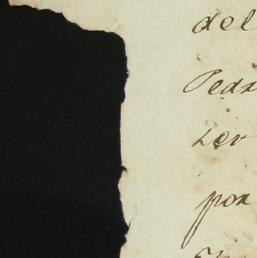 del
Pedr
Ler
por